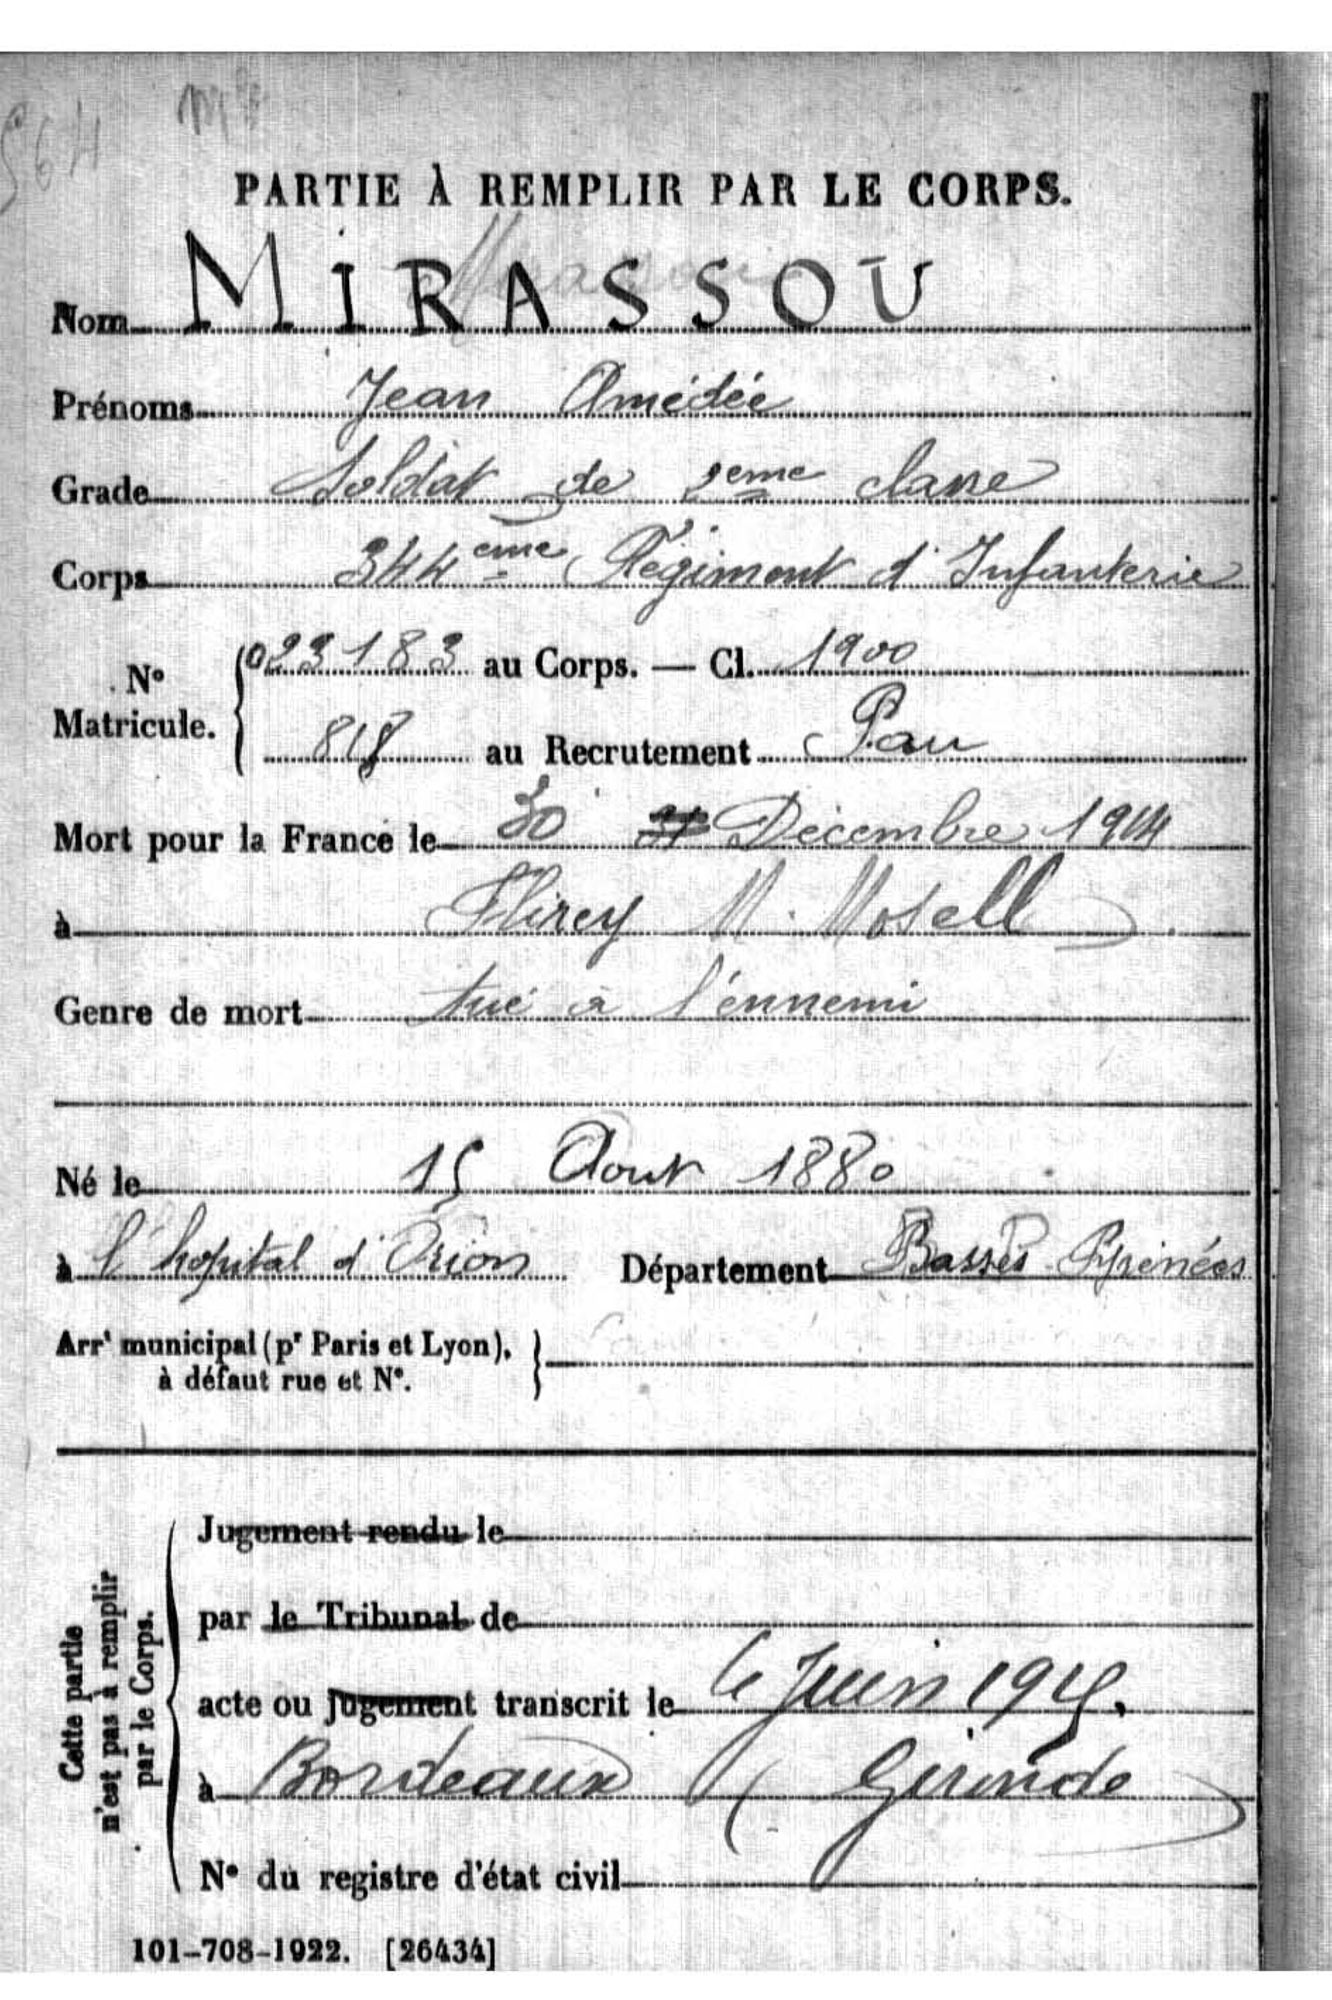 564
PARTIE À REMPLIR PAR LE CORPS.
Nom MIRASSOU
Prénoms Jean Amédée
Grade Soldat de 2eme classe
Corps 344eme Régiment d'Infanterie
N° Matricule. { 023183 au Corps. — Cl. 1900
818 au Recrutement Pau
Mort pour la France le 30 31 Décembre 1914
à Flirey M. Mosell
Genre de mort tué à l'ennemi
Né le 15 Aout 1880
à l'hopital d'Orion Département Basses Pyrénées
Arrt municipal (pr Paris et Lyon),
à défaut rue et N°.
Cette partie
n'est pas à remplir
par le Corps.
Jugement rendu le
par le Tribunal de
acte ou jugement transcrit le 4 Juin 1915.
à Bordeaux (Gironde)
N° du registre d'état civil
101-708-1922. [26434]